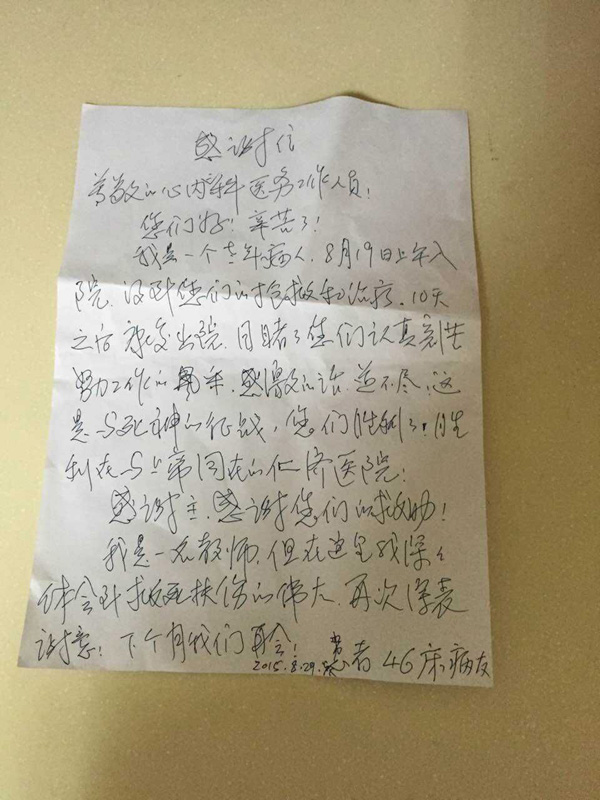 感谢信
尊敬的心内科医务工作人员！
您们好！辛苦了！
我是一个老年病人，8月19日上午入
院，得到您们的抢救和治疗，10天
之后康复出院，目睹了您们认真刻苦
努力工作的，感激的话，道不尽，这
是与死神的征战，您们胜利了！胜
利在与上帝同在的仁济医院！
感谢主，感谢您们的救助！
我是一名教师，但在这里我深深
体会到救死扶伤的伟大，再次深表
谢意！下个月我们再会！
2015.8.29. 患者 46床病友